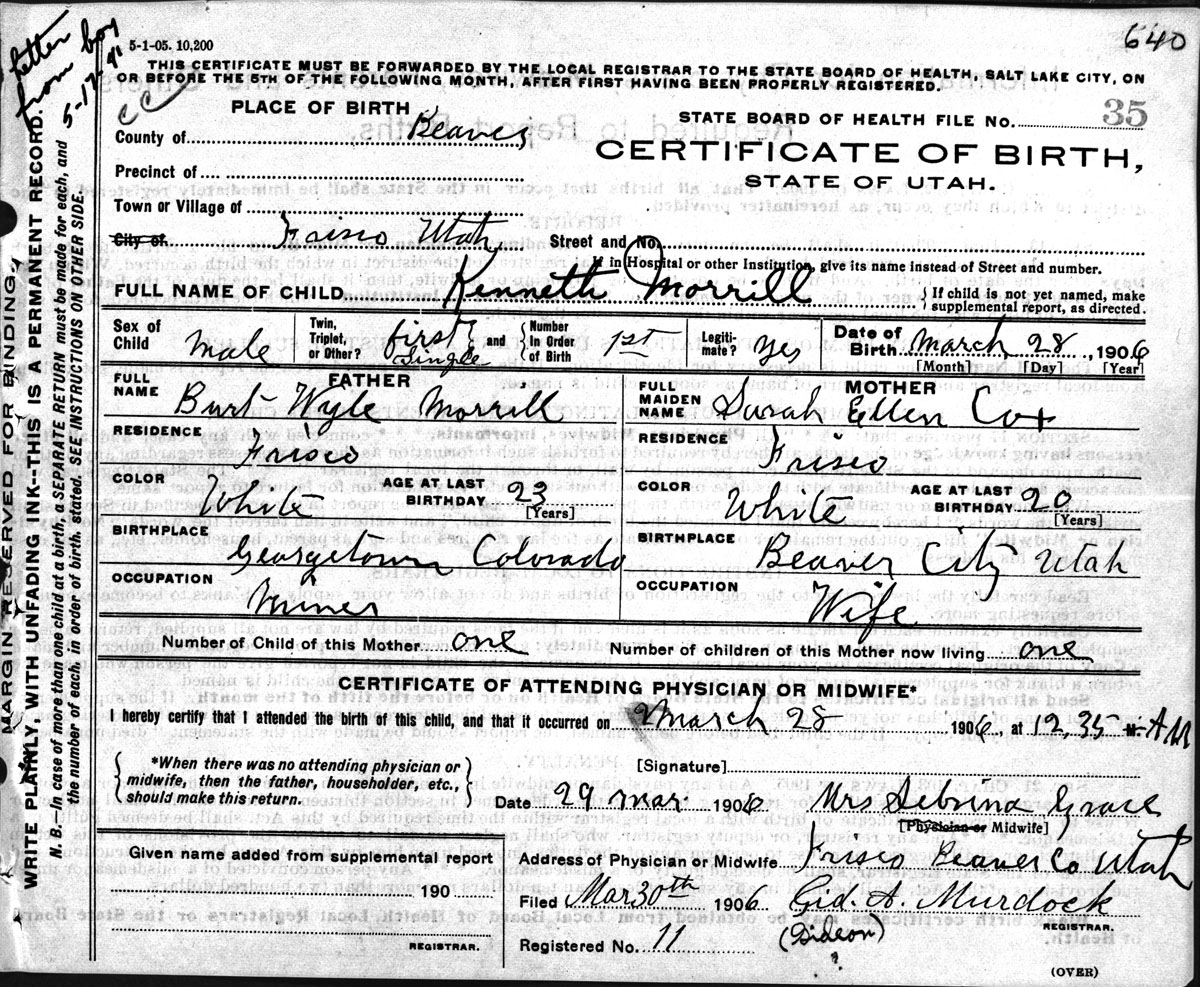 640
5-1-05. 10,200
letter from boy
5-17
cc
THIS CERTIFICATE MUST BE FORWARDED BY THE LOCAL REGISTRAR TO THE STATE BOARD OF HEALTH, SALT LAKE CITY, ON
OR BEFORE THE 5TH OF THE FOLLOWING MONTH, AFTER FIRST HAVING BEEN PROPERLY REGISTERED.
PLACE OF BIRTH
STATE BOARD OF HEALTH FILE NO. 35
County of Beaver
CERTIFICATE OF BIRTH,
STATE OF UTAH.
Precinct of
Town or Village of
City of Frisco Utah Street and No.
If in Hospital or other Institution, give its name instead of Street and number.
FULL NAME OF CHILD Kenneth Morrill { If child is not yet named, make supplemental report, as directed.
Sex of Child Male Twin, Triplet, or Other? first Single and { Number In Order of Birth 1st Legiti-mate? Yes Date of Birth March 28, 1906
[Month] [Day] [Year]
FATHER
FULL NAME Burt Wyle Morrill
RESIDENCE Frisco
COLOR White AGE AT LAST BIRTHDAY 23 [Years]
BIRTHPLACE Georgetown Colorado
OCCUPATION Miner
MOTHER
FULL MAIDEN NAME Sarah Ellen Cox
RESIDENCE Frisco
COLOR White AGE AT LAST BIRTHDAY 20 [Years]
BIRTHPLACE Beaver City Utah
OCCUPATION Wife
Number of Child of this Mother one Number of children of this Mother now living one
CERTIFICATE OF ATTENDING PHYSICIAN OR MIDWIFE*
I hereby certify that I attended the birth of this child, and that it occurred on March 28 1906, at 12,35 M. AM
{ *When there was no attending physician or midwife, then the father, householder, etc., should make this return. }
[Signature]
Date 29 Mar. 1906 Mrs Sebrina Grace
[Physician or Midwife]
Given name added from supplemental report
190
REGISTRAR.
Address of Physician or Midwife Frisco Beaver Co. Utah
Filed Mar 30th 1906 Gid. A. Murdock
(Gideon) REGISTRAR.
Registered No. 11
(OVER)
MARGIN RESERVED FOR BINDING
WRITE PLAINLY, WITH UNFADING INK--THIS IS A PERMANENT RECORD.
N. B. In case of more than one child at a birth, a SEPARATE RETURN must be made for each, and
the number of each, in order of birth, stated. SEE INSTRUCTIONS ON OTHER SIDE.